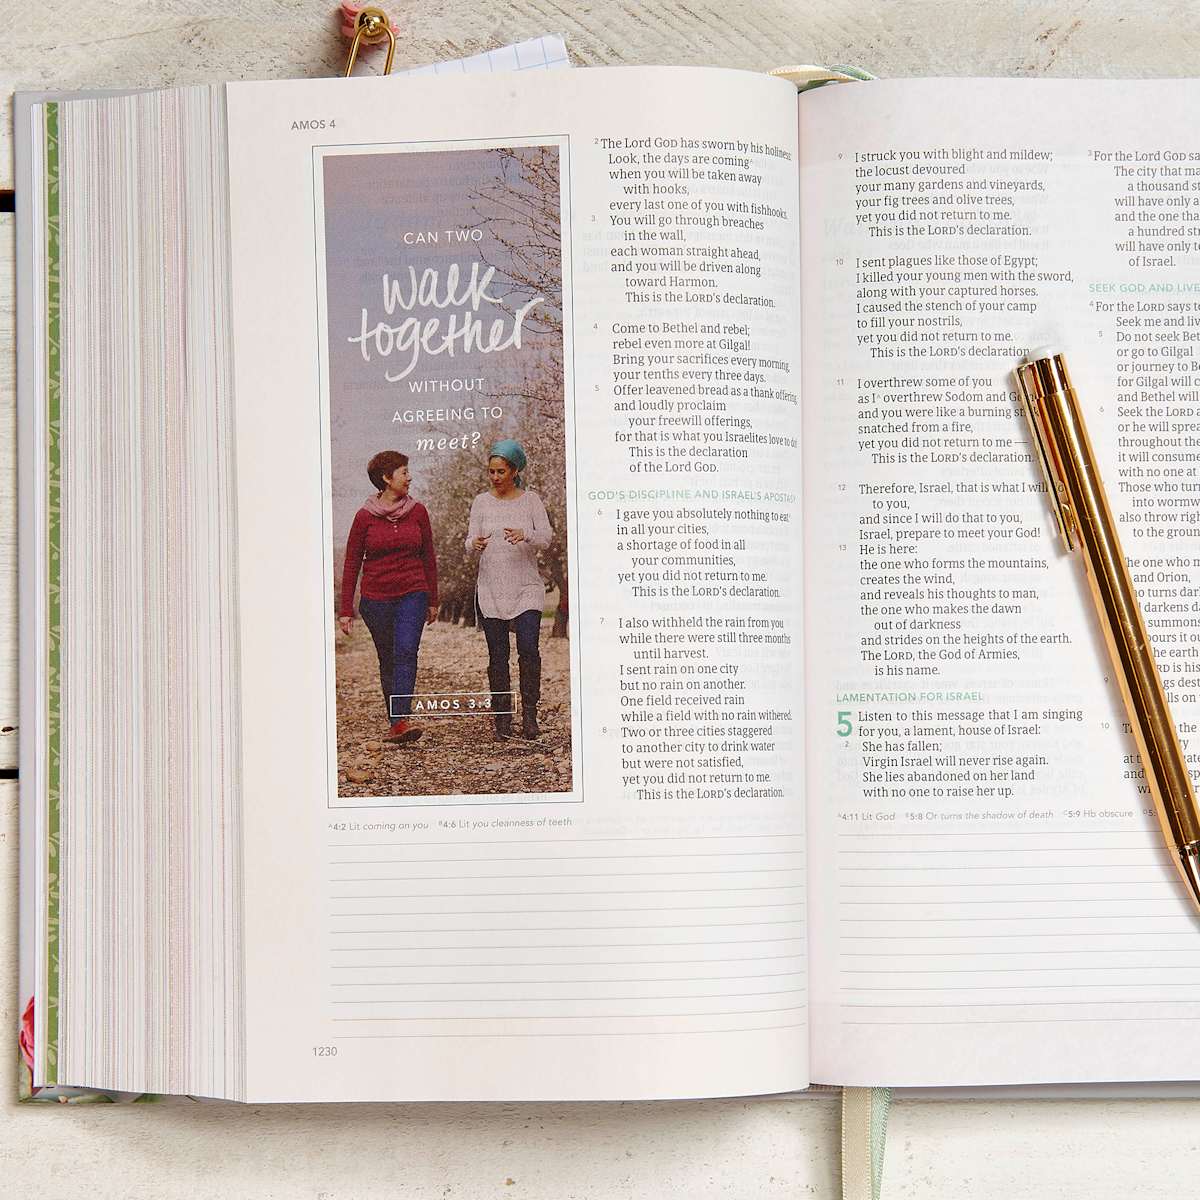 AMOS 4
CAN TWO
walk
together
WITHOUT
AGREEING TO
meet?
AMOS 3:3
2 The Lord GOD has sworn by his holiness:
Look, the days are coming^
when you will be taken away
with hooks,
every last one of you with fishhooks.
3 You will go through breaches
in the wall,
each woman straight ahead,
and you will be driven along
toward Harmon.
This is the LORD's declaration.
4 Come to Bethel and rebel;
rebel even more at Gilgal!
Bring your sacrifices every morning,
your tenths every three days.
5 Offer leavened bread as a thank offering,
and loudly proclaim
your freewill offerings,
for that is what you Israelites love to do!
This is the declaration
of the Lord GOD.
GOD'S DISCIPLINE AND ISRAEL'S APOSTASY
6 I gave you absolutely nothing to eat
in all your cities,
a shortage of food in all
your communities,
yet you did not return to me.
This is the LORD's declaration.
7 I also withheld the rain from you
while there were still three months
until harvest.
I sent rain on one city
but no rain on another.
One field received rain
while a field with no rain withered.
8 Two or three cities staggered
to another city to drink water
but were not satisfied,
yet you did not return to me.
This is the LORD's declaration.
A4:2 Lit coming on you B4:6 Lit you cleanness of teeth
1230
9 I struck you with blight and mildew;
the locust devoured
your many gardens and vineyards,
your fig trees and olive trees,
yet you did not return to me.
This is the LORD's declaration.
10 I sent plagues like those of Egypt;
I killed your young men with the sword,
along with your captured horses.
I caused the stench of your camp
to fill your nostrils,
yet you did not return to me.
This is the LORD's declaration
11 I overthrew some of you
as I^ overthrew Sodom and
and you were like a burning
snatched from a fire,
yet you did not return to me —
This is the LORD's declaration.
12 Therefore, Israel, that is what I will
to you,
and since I will do that to you,
Israel, prepare to meet your God!
13 He is here:
the one who forms the mountains,
creates the wind,
and reveals his thoughts to man,
the one who makes the dawn
out of darkness
and strides on the heights of the earth.
The LORD, the God of Armies,
is his name.
LAMENTATION FOR ISRAEL
5 Listen to this message that I am singing
for you, a lament, house of Israel:
2 She has fallen;
Virgin Israel will never rise again.
She lies abandoned on her land
with no one to raise her up.
A4:11 Lit God B5:8 Or turns the shadow of death C5:9 Hb obscure
3 For the Lord GOD
The city that
a thousand
will have only
and the one
a hundred
will have only
of Israel.
SEEK GOD AND LIVE
4 For the LORD says
Seek me and
5 Do not seek
or go to Gilgal
or journey to
for Gilgal will
and Bethel will
6 Seek the LORD
or he will
throughout the
it will consume
with no one at
7 Those who
into
also throw
to the
one who
and Orion,
the earth
is his
9
10